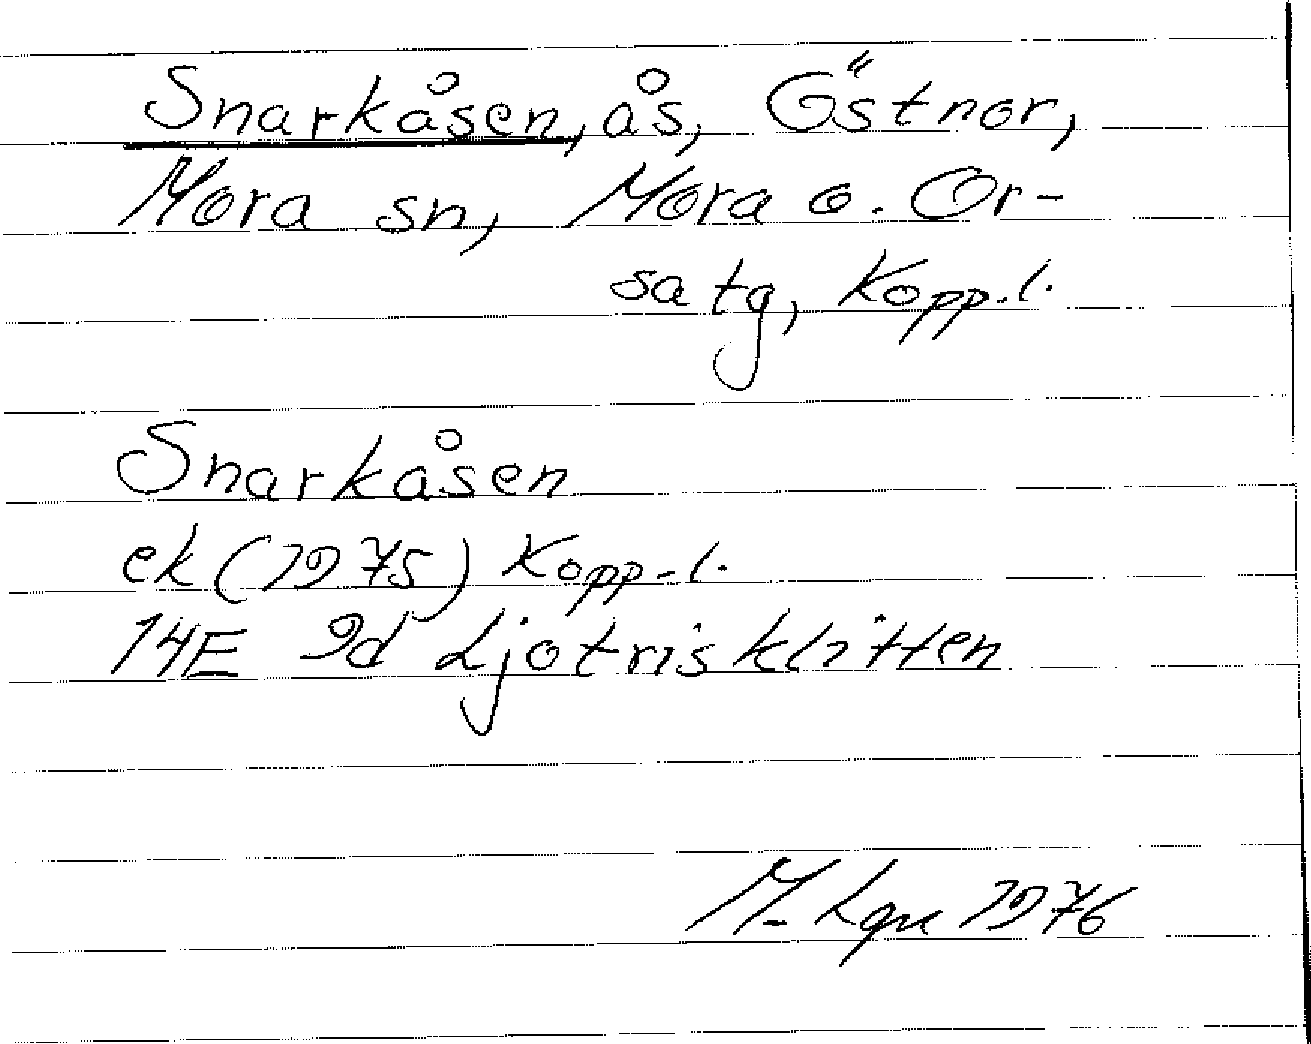 Snarkåsen, ås, Östnor,
Mora sn, Mora o. Or-
sa tg, Kopp.l.
Snarkåsen
ek (1975) Kopp.l.
14E 9d Ljotrisklitten
M. 1976